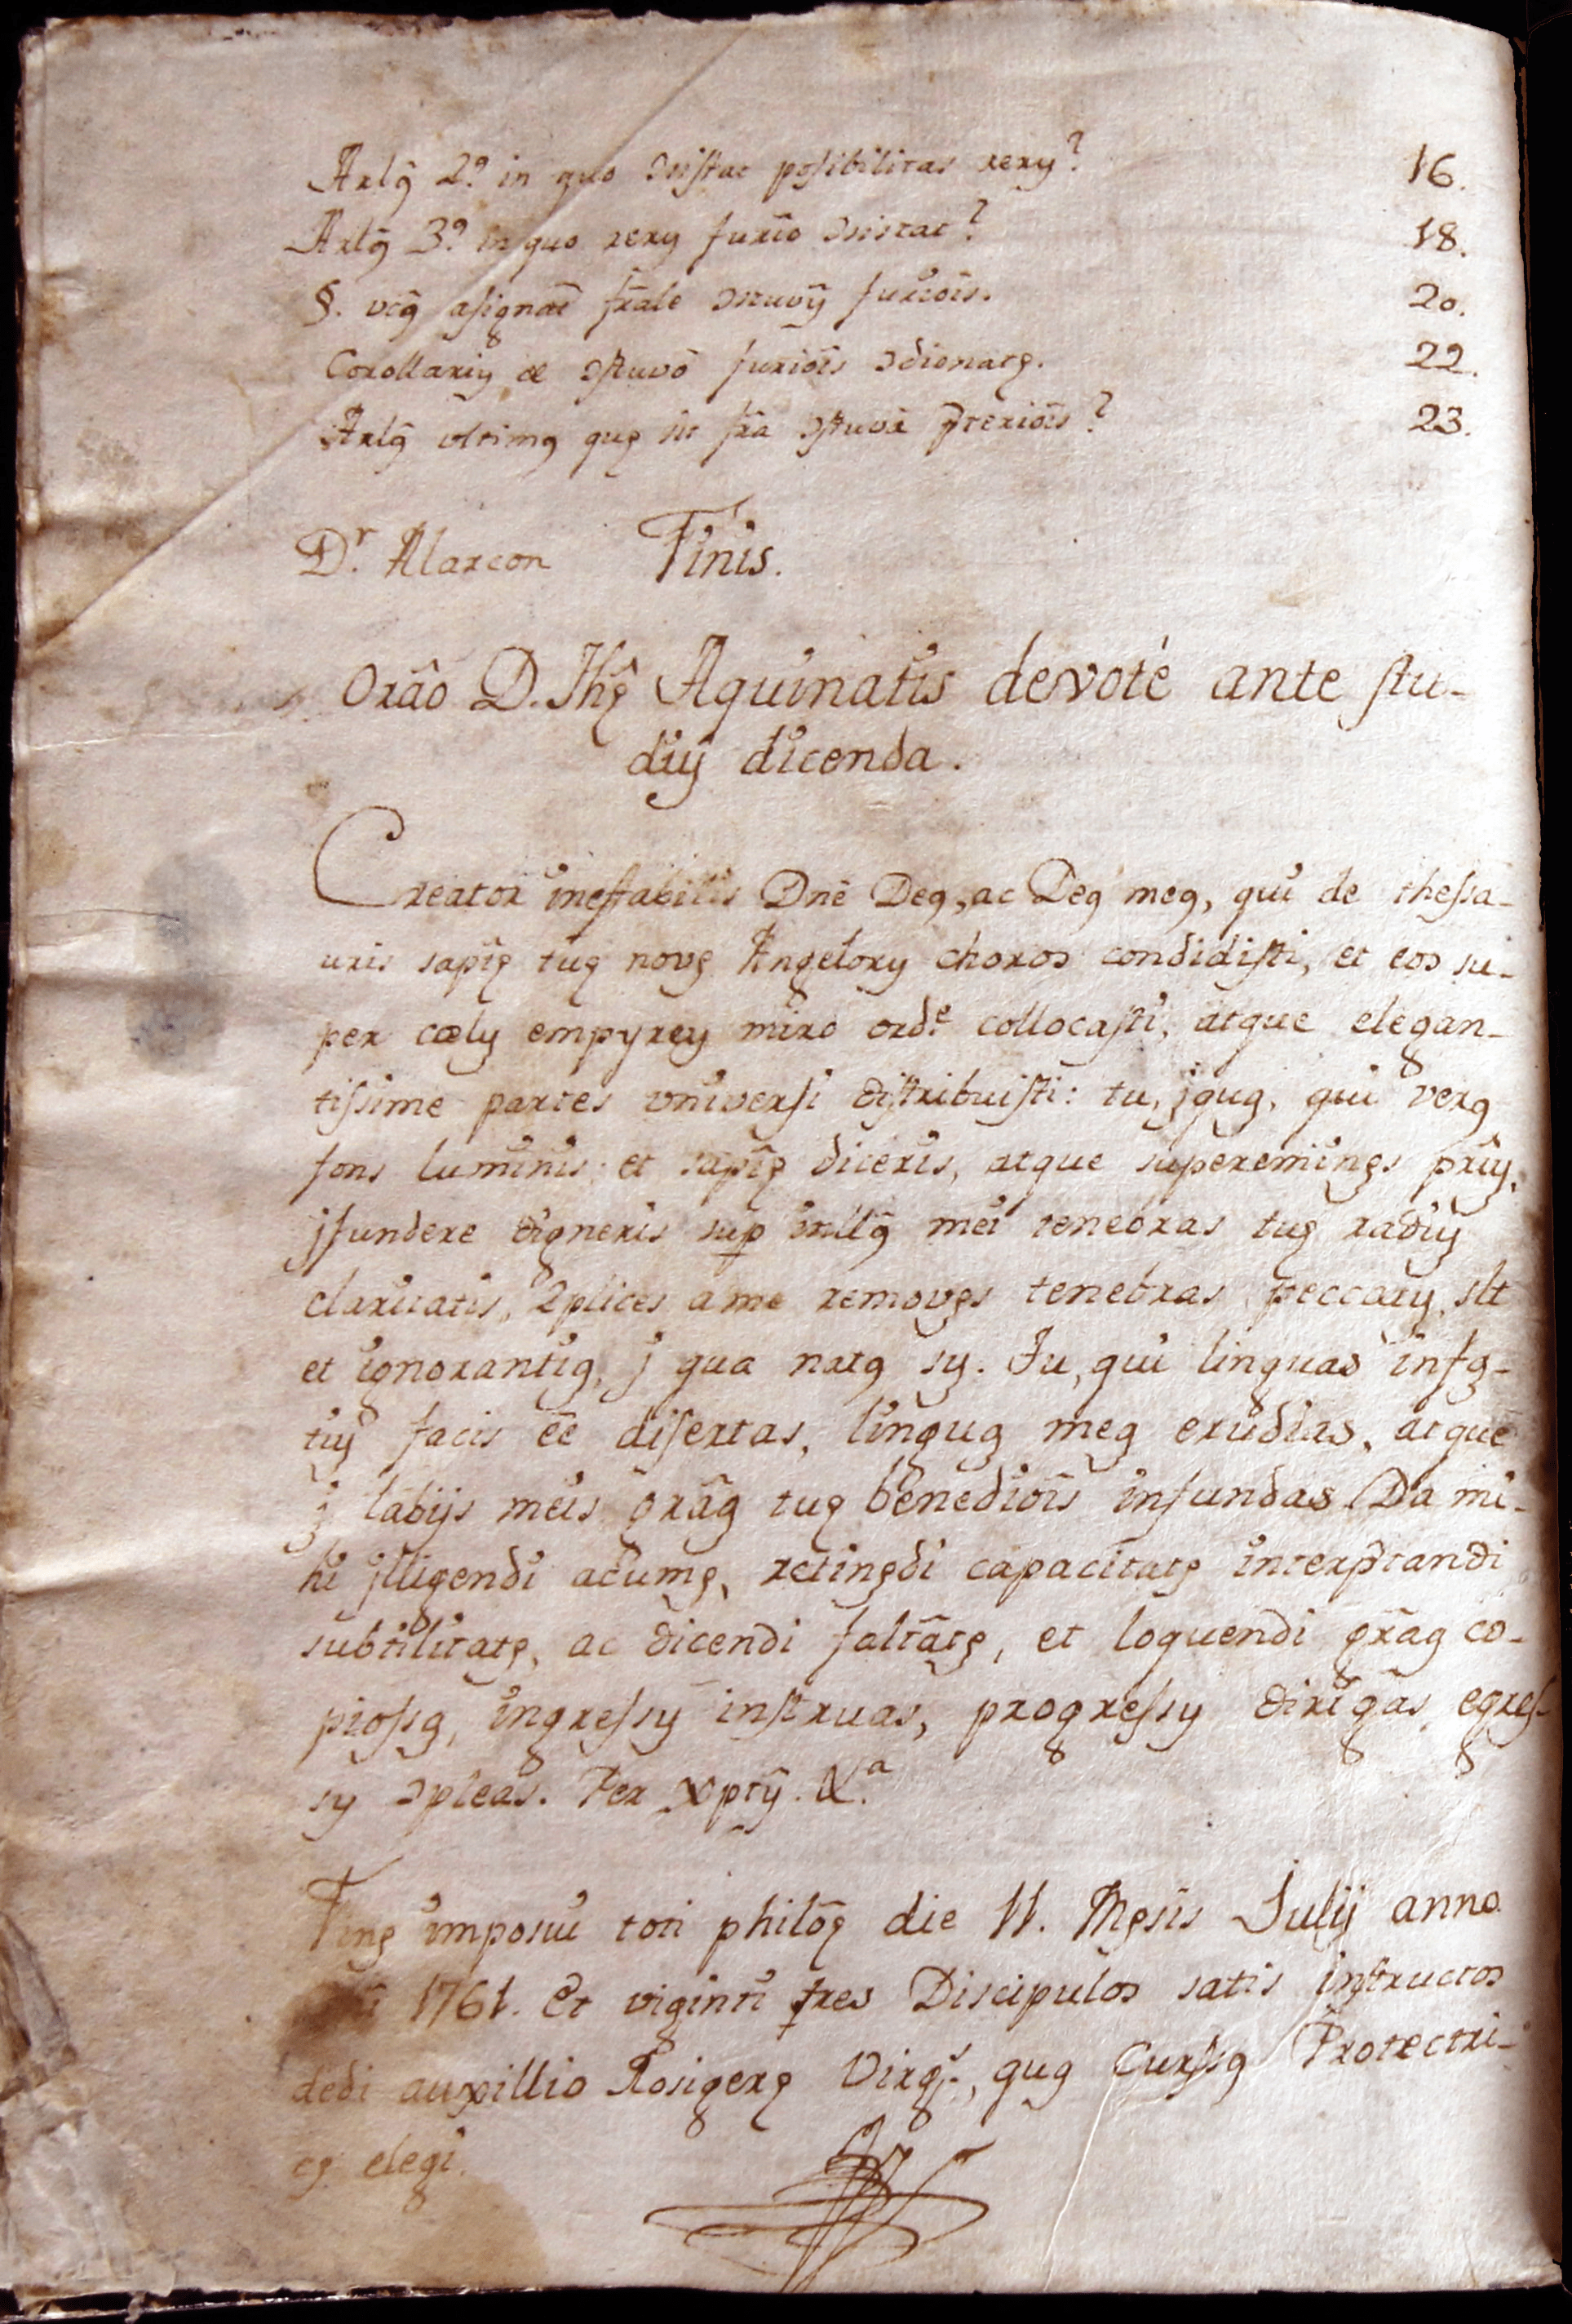 Artlꝰ 2.º in quo ↄsistat posibilitas rerꝫ? 16.
Artlꝰ 3.º in quo rerꝫ futiõ ↄsistat? 18.
§. vcꝰ asignãt frãle ↄtuvꝫ futiõis. 20.
Corollariꝫ æ ↄstuvõ futiõis ↄdionatę. 22.
Artlꝰ vltimꝰ quę sit frã ↄstuvã p̃teriõis? 23.
D.r Alarcon Finis.
Orâo D. Thę Aquinatis devotè ante stu-
diꝫ dicenda.
Creator ineffabilis Dnẽ Deꝰ, ac Deꝰ meꝰ, qui de thessa-
uris sapîę tuę novę Angelorꝫ choros condidisti, et eos su-
per cœlꝫ empyreꝫ miro ord.e collocasti, atque elegan-
tissime partes vniversi distribuisti: tu, jquꝫ, qui verꝰ
fons luminis, et sapîę diceris, atque supereminęs prîꝫ,
jfundere digneris sup intllꝰ mei tenebras tuę radiꝫ
claritatis, 2plices a me removęs tenebras, peccatꝫ, slt
et ignorantiꝫ, j qua natꝰ sꝫ. Tu, qui linguas infą-
tiꝫ facis ẽe disertas, linguꝫ meꝫ erudias, atque
j labijs meis grãꝫ tuę benediõis infundas. Da mi-
hi jlligendi acumę, retinędi capacitatę interp̃tandi
subtilitatę, ac dicendi faltãtę, et loquendi grãꝫ co-
piossꝫ, ingressꝫ instruas, progressꝫ dirigas, egres-
sꝫ ↄpleas. Per xptꝫ. &.a
Finę imposui toti philõę die 11. Męsis Julij anno
1761. Et viginti tres Discipulos satis instructos
dedi auxillio Rosigerę Virgs., quꝫ Cursꝰ Protectri-
cę elegi.